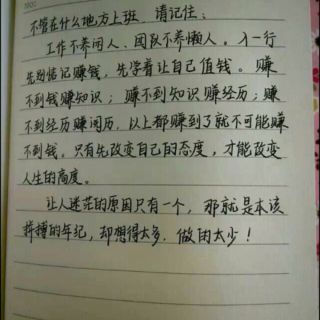 不管在什么地方上班,请记住:
工作不养闲人、团队不养懒人。入一行
先别惦记赚钱,先学着让自己值钱。赚
不到钱赚知识;赚不到知识赚经历;赚
不到经历赚阅历.以上都赚到了就不可能赚
不到钱。只有先改变自己的态度,才能改变
人生的高度。
让人迷茫的原因只有一个,那就是本该
拼搏的年纪,却想得太多.做的太少!